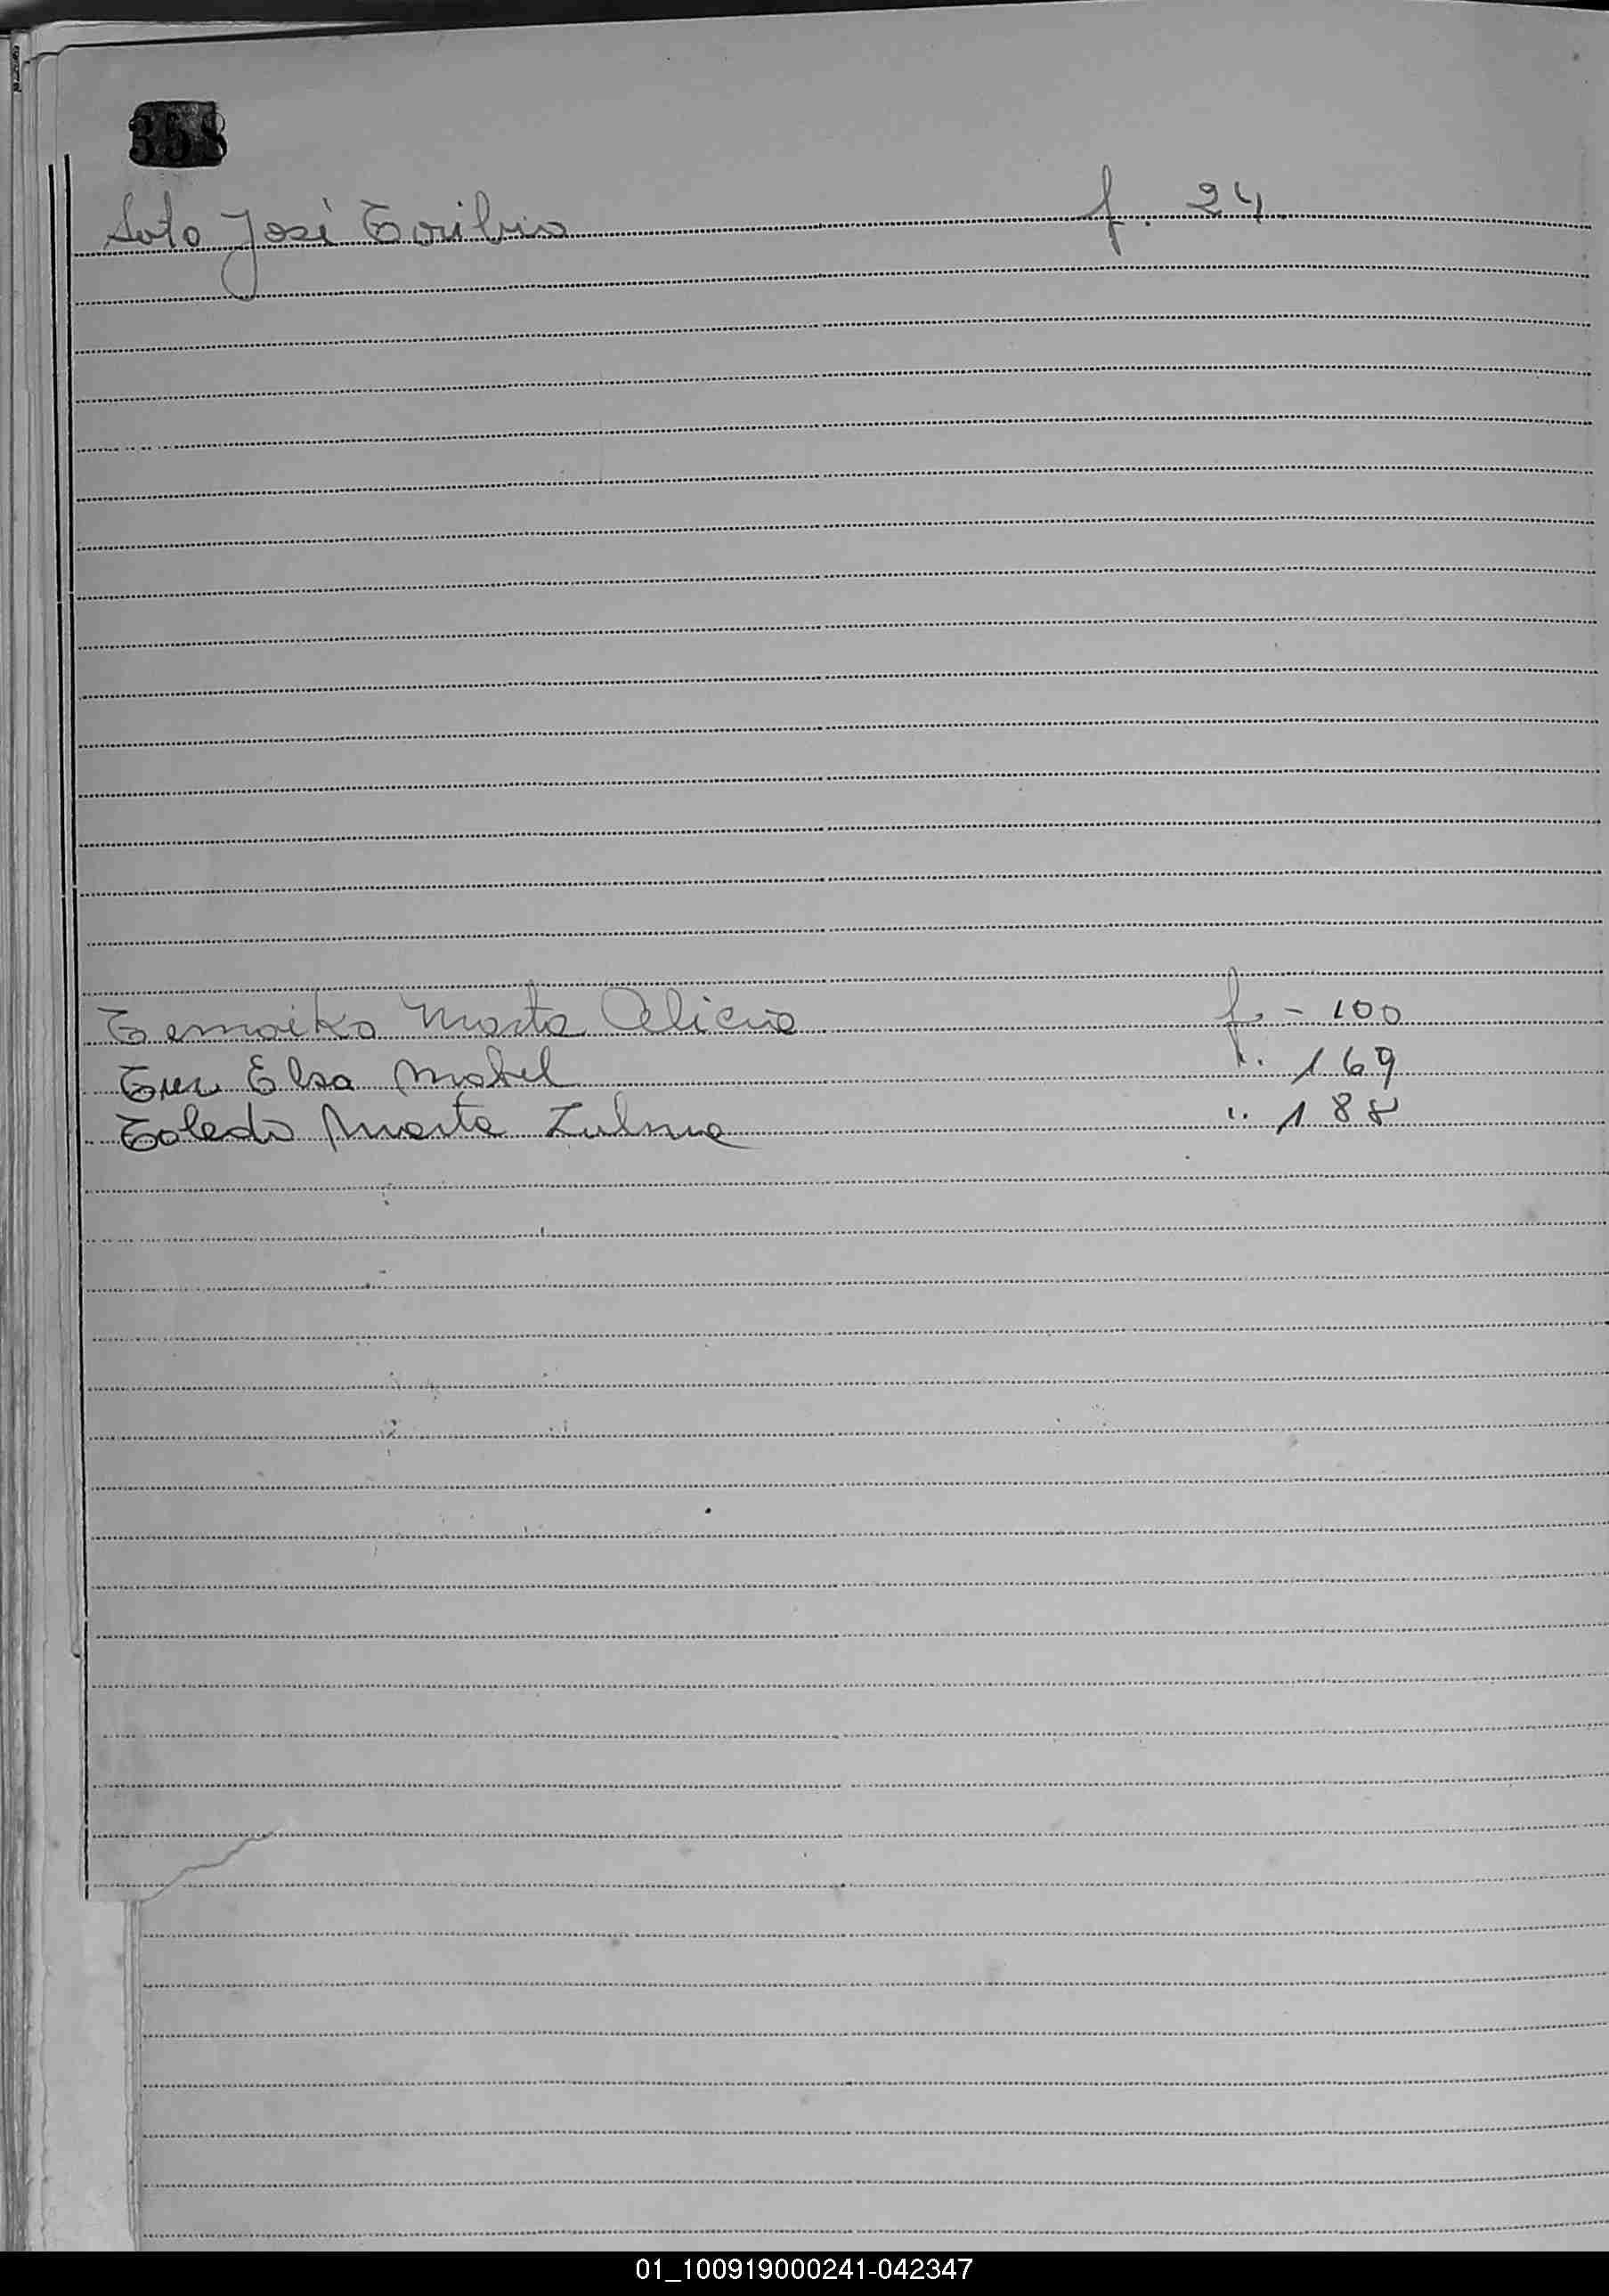 358
Soto José Toribio f. 24
Temoiko Marta Alicia f. - 100
Elsa Mabel ". 169
Toledo Marta Zulma ". 188
01_100919000241-042347